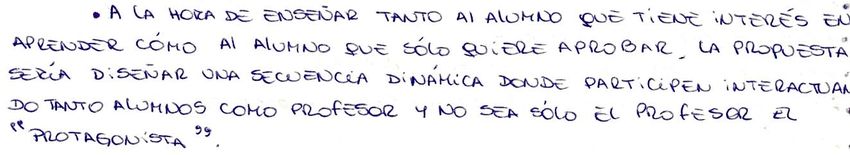 • A LA HORA DE ENSEÑAR TANTO AL ALUMNO QUE TIENE INTERÉS EN
APRENDER CÓMO AL ALUMNO QUE SÓLO QUIERE APROBAR, LA PROPUESTA
SERÍA DISEÑAR UNA SECUENCIA DINÁMICA DONDE PARTICIPEN INTERACTUAN
DO TANTO ALUMNOS COMO PROFESOR Y NO SEA SÓLO EL PROFESOR EL
"PROTAGONISTA".